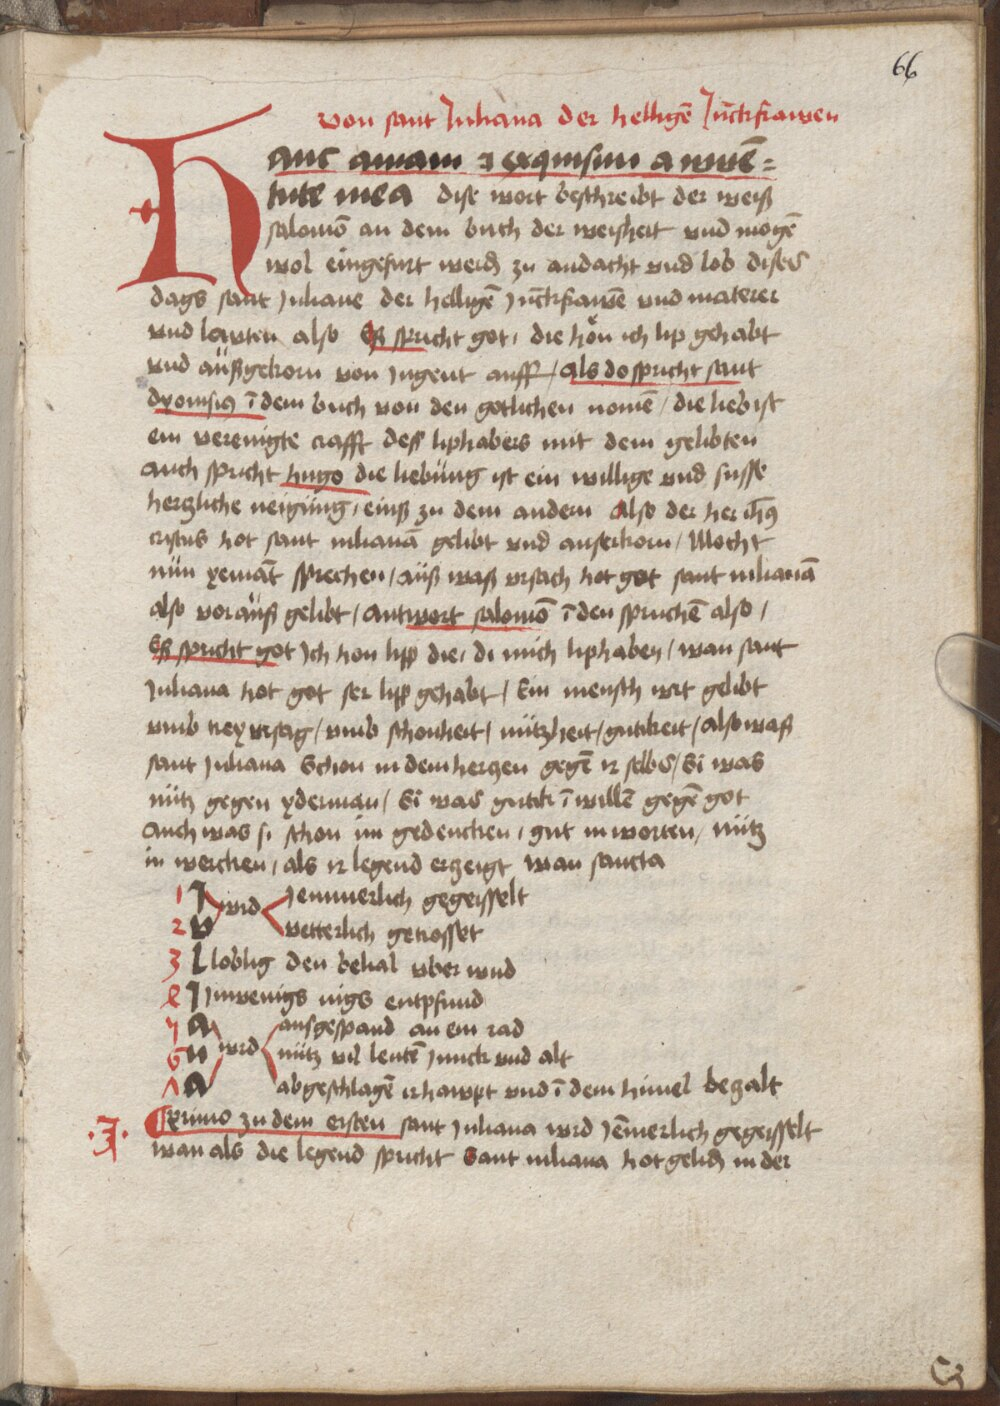 66
von sant Juliana der helligē Jūckfrawen
Hanc amam & exquisiui a iuuē=
tute mea dise wort beschreibt der weiß
salomō an dem buch der weisheit vnd mogē
wol eingefurt werdn zu andacht vnd lob dises
dags sant Juliane der helligē Jūckfrawē vnd materer
vnd lawten also Eß spricht got, die hon ich lip gehabt
vnd außgekorn von Jugent auff / als do spricht sant
dyonisius ī dem buch von den gotlichen nomē / die lieb ist
ein verenigte crafft deß liphabers mit dem gelibten
auch spricht hugo die liebung ist ein willige vnd susse
hertzliche neigung, einß zu dem andern Also der her ihūs
cristus hot sant iulianā gelibt vnd auserkorn / Mocht
nün yemāt sprechen / auß waß vrsach hot got sant iulianā
also vorauß gelibt / antwort salomō ī den spruchē also /
Eß spricht got Jch hon lipp die, di mich liphaben / wan sant
Juliana hot got ser lipp gehabt / Ein mensch wirt gelibt
vmb vrsag / vmb schonheit / nützheit / gutikeit / also waß
sant Juliana Schon in dem hertzen gegē ir selbs / Si was
nütz gegen yderman / Si was gutik ī willē gegē got
auch was si schon im gedencken, gut in worten, nütz
in wercken, als ir legend ertzeigt wan sancta
1 J wird Jemmerlich gegeisselt
2 v vetterlich getrosset
3 L loblig den belial vber wnd
4 J Jnwenigs nigs entpfund
5 A wird ausgespand an ein rad
6 N nütz vil leutē Junck vnd alt
7 A abgeschlagē ir hawpt vnd ī dem himel bezalt
.J. Primo zu dem ersten sant Juliana wird Jēmerlich gegeisselt
wan als die legend spricht Sant iuliana hot gelidn in der